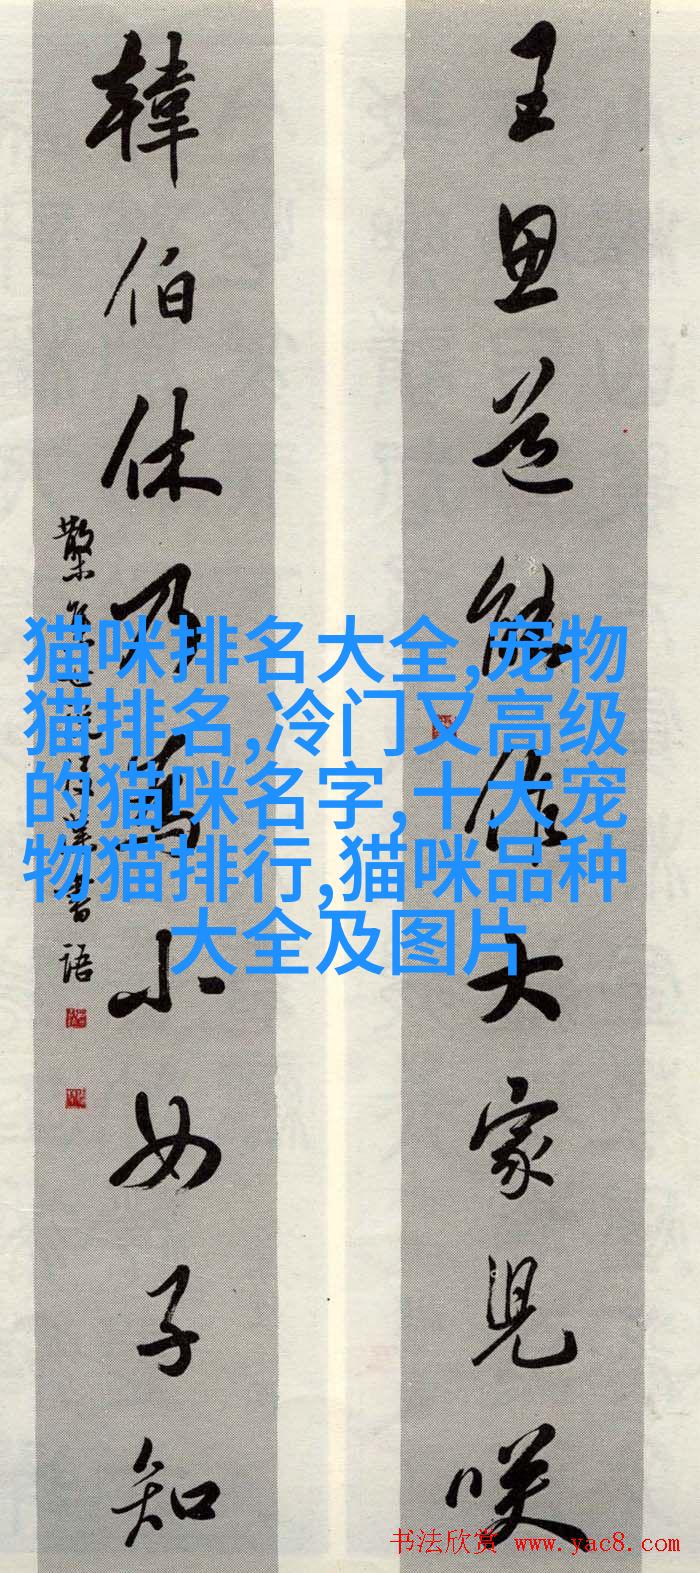 王思道能作大家兒咲
韓伯休乃為小女子知
書語
猫咪排名大全,宠物
猫排名,冷门又高级
的猫咪名字,十大宠
物猫排行,猫咪品种
大全及图片
书法欣赏 www.yac8.com